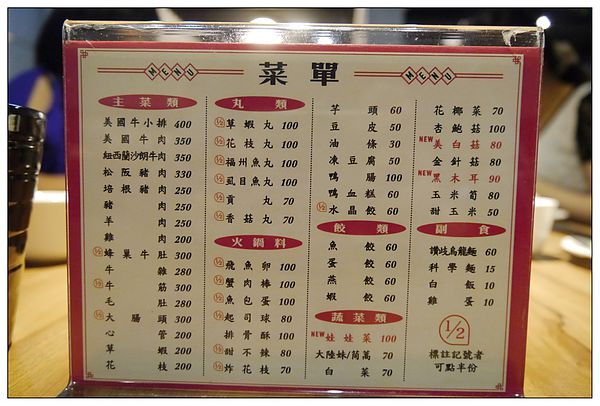 MENU 菜單 MENU
主菜類
美國牛小排 400
美國牛肉 350
紐西蘭沙朗牛肉 350
松阪豬肉 330
培根豬肉 250
豬肉 250
羊肉 250
雞肉 200
½ 蜂巢牛肚 300
牛雜 280
½ 牛筋 300
毛肚 280
½ 大腸頭 300
心管 200
草蝦 200
花枝 200
丸類
½ 草蝦丸 100
½ 花枝丸 100
½ 福州魚丸 100
½ 虱目魚丸 100
½ 貢丸 70
½ 香菇丸 70
火鍋料
½ 飛魚卵 100
½ 蟹肉棒 100
½ 魚包蛋 100
½ 起司球 80
排骨酥 100
½ 甜不辣 80
½ 炸花枝 70
芋頭 60
豆皮 50
油條 30
凍豆腐 50
鴨腸 100
鴨血糕 60
½ 水晶餃 60
餃類
魚餃 60
蛋餃 60
燕餃 60
蝦餃 60
蔬菜類
NEW 娃娃菜 100
大陸妹/茼萵 70
白菜 70
花椰菜 70
杏鮑菇 100
NEW 美白菇 80
金針菇 80
NEW 黑木耳 90
玉米筍 80
甜玉米 50
副食
讚岐烏龍麵 60
科學麵 15
白飯 10
雞蛋 10
1/2
標註記號者
可點半份